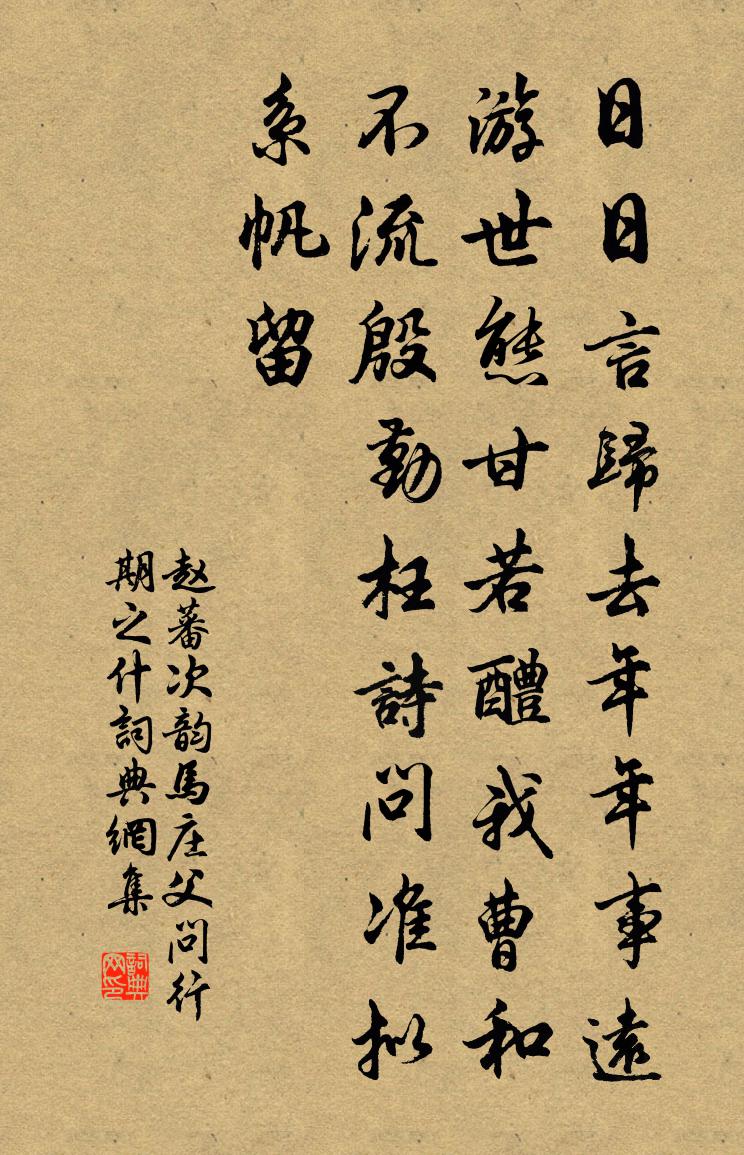 日日言歸去年年事遠
游世態甘若醴我曹和
不流殷勤枉詩問準拟
系帆留
赵蕃次韵馬庄父問行
期之什詞典網集
詞典
网印